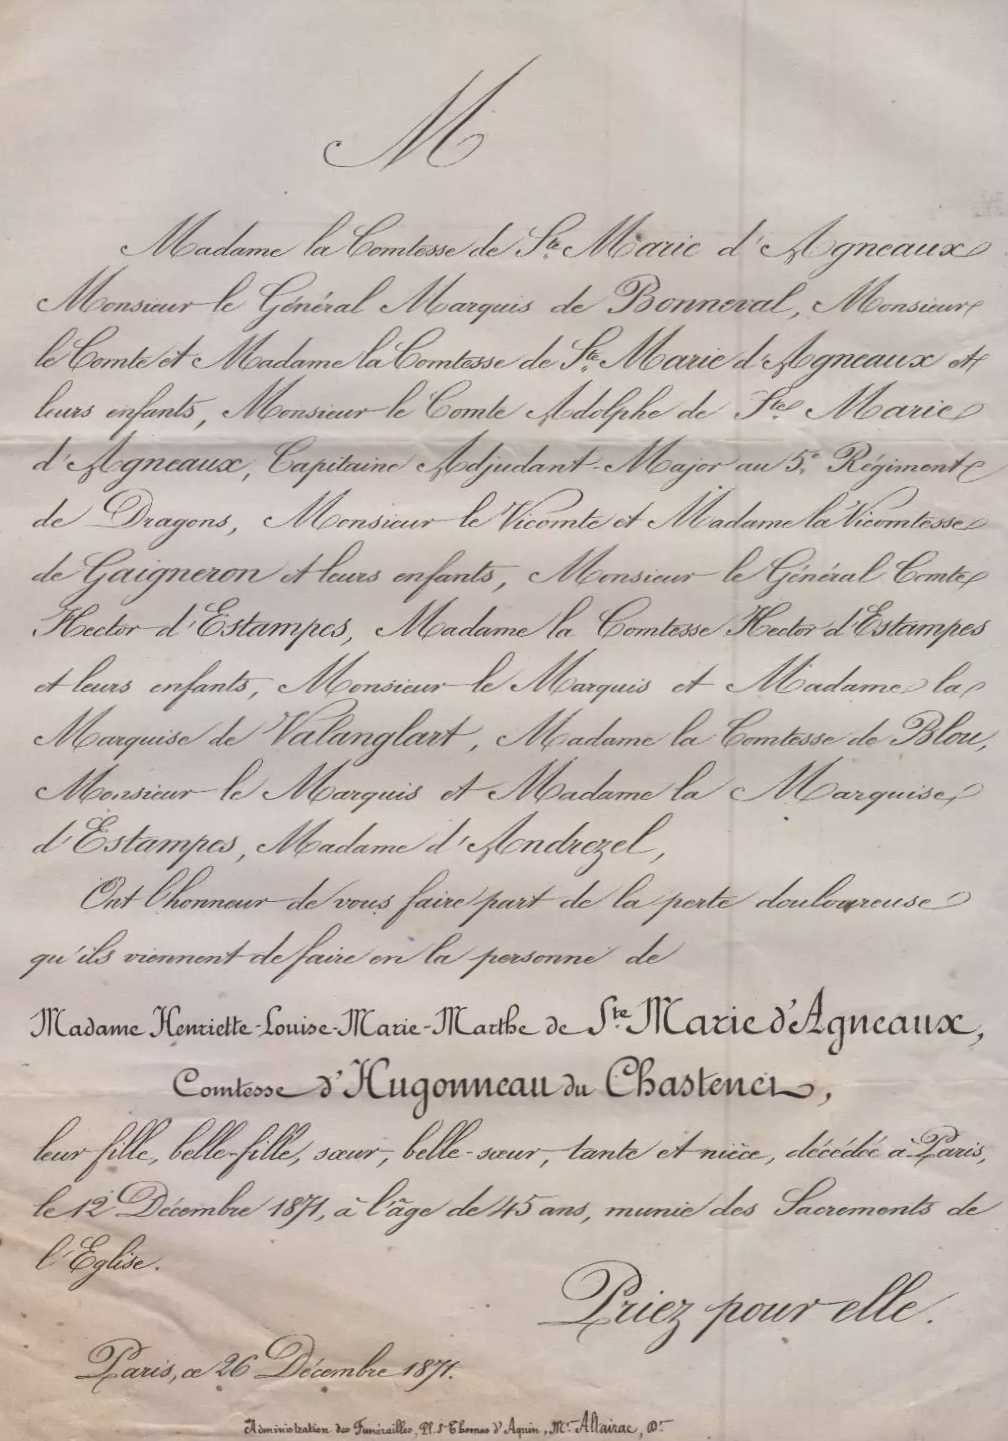 M
Madame la Comtesse de Ste Marie d'Agneaux
Monsieur le Général Marquis de Bonneval, Monsieur
le Comte et Madame la Comtesse de Ste Marie d'Agneaux et
leurs enfants, Monsieur le Comte Adolphe de Ste Marie
d'Agneaux, Capitaine Adjudant-Major au 5e Régiment
de Dragons, Monsieur le Vicomte et Madame la Vicomtesse
de Gaigneron et leurs enfants, Monsieur le Général Comte
Hector d'Estampes, Madame la Comtesse Hector d'Estampes
et leurs enfants, Monsieur le Marquis et Madame la
Marquise de Valanglart, Madame la Comtesse de Blou,
Monsieur le Marquis et Madame la Marquise
d'Estampes, Madame d'Andrezel,
Ont l'honneur de vous faire part de la perte douloureuse
qu'ils viennent de faire en la personne de
Madame Henriette-Louise-Marie-Marthe de Ste Marie d'Agneaux,
Comtesse d'Hugonneau du Chastenet,
leur fille, belle-fille, sœur, belle-sœur, tante et nièce, décédée à Paris,
le 12 Décembre 1871, à l'âge de 45 ans, munie des Sacrements de
l'Eglise.
Priez pour elle.
Paris, ce 26 Décembre 1871.
Administration des Funérailles, Pl. St Thomas d'Aquin, Mr. Altairac, Dr